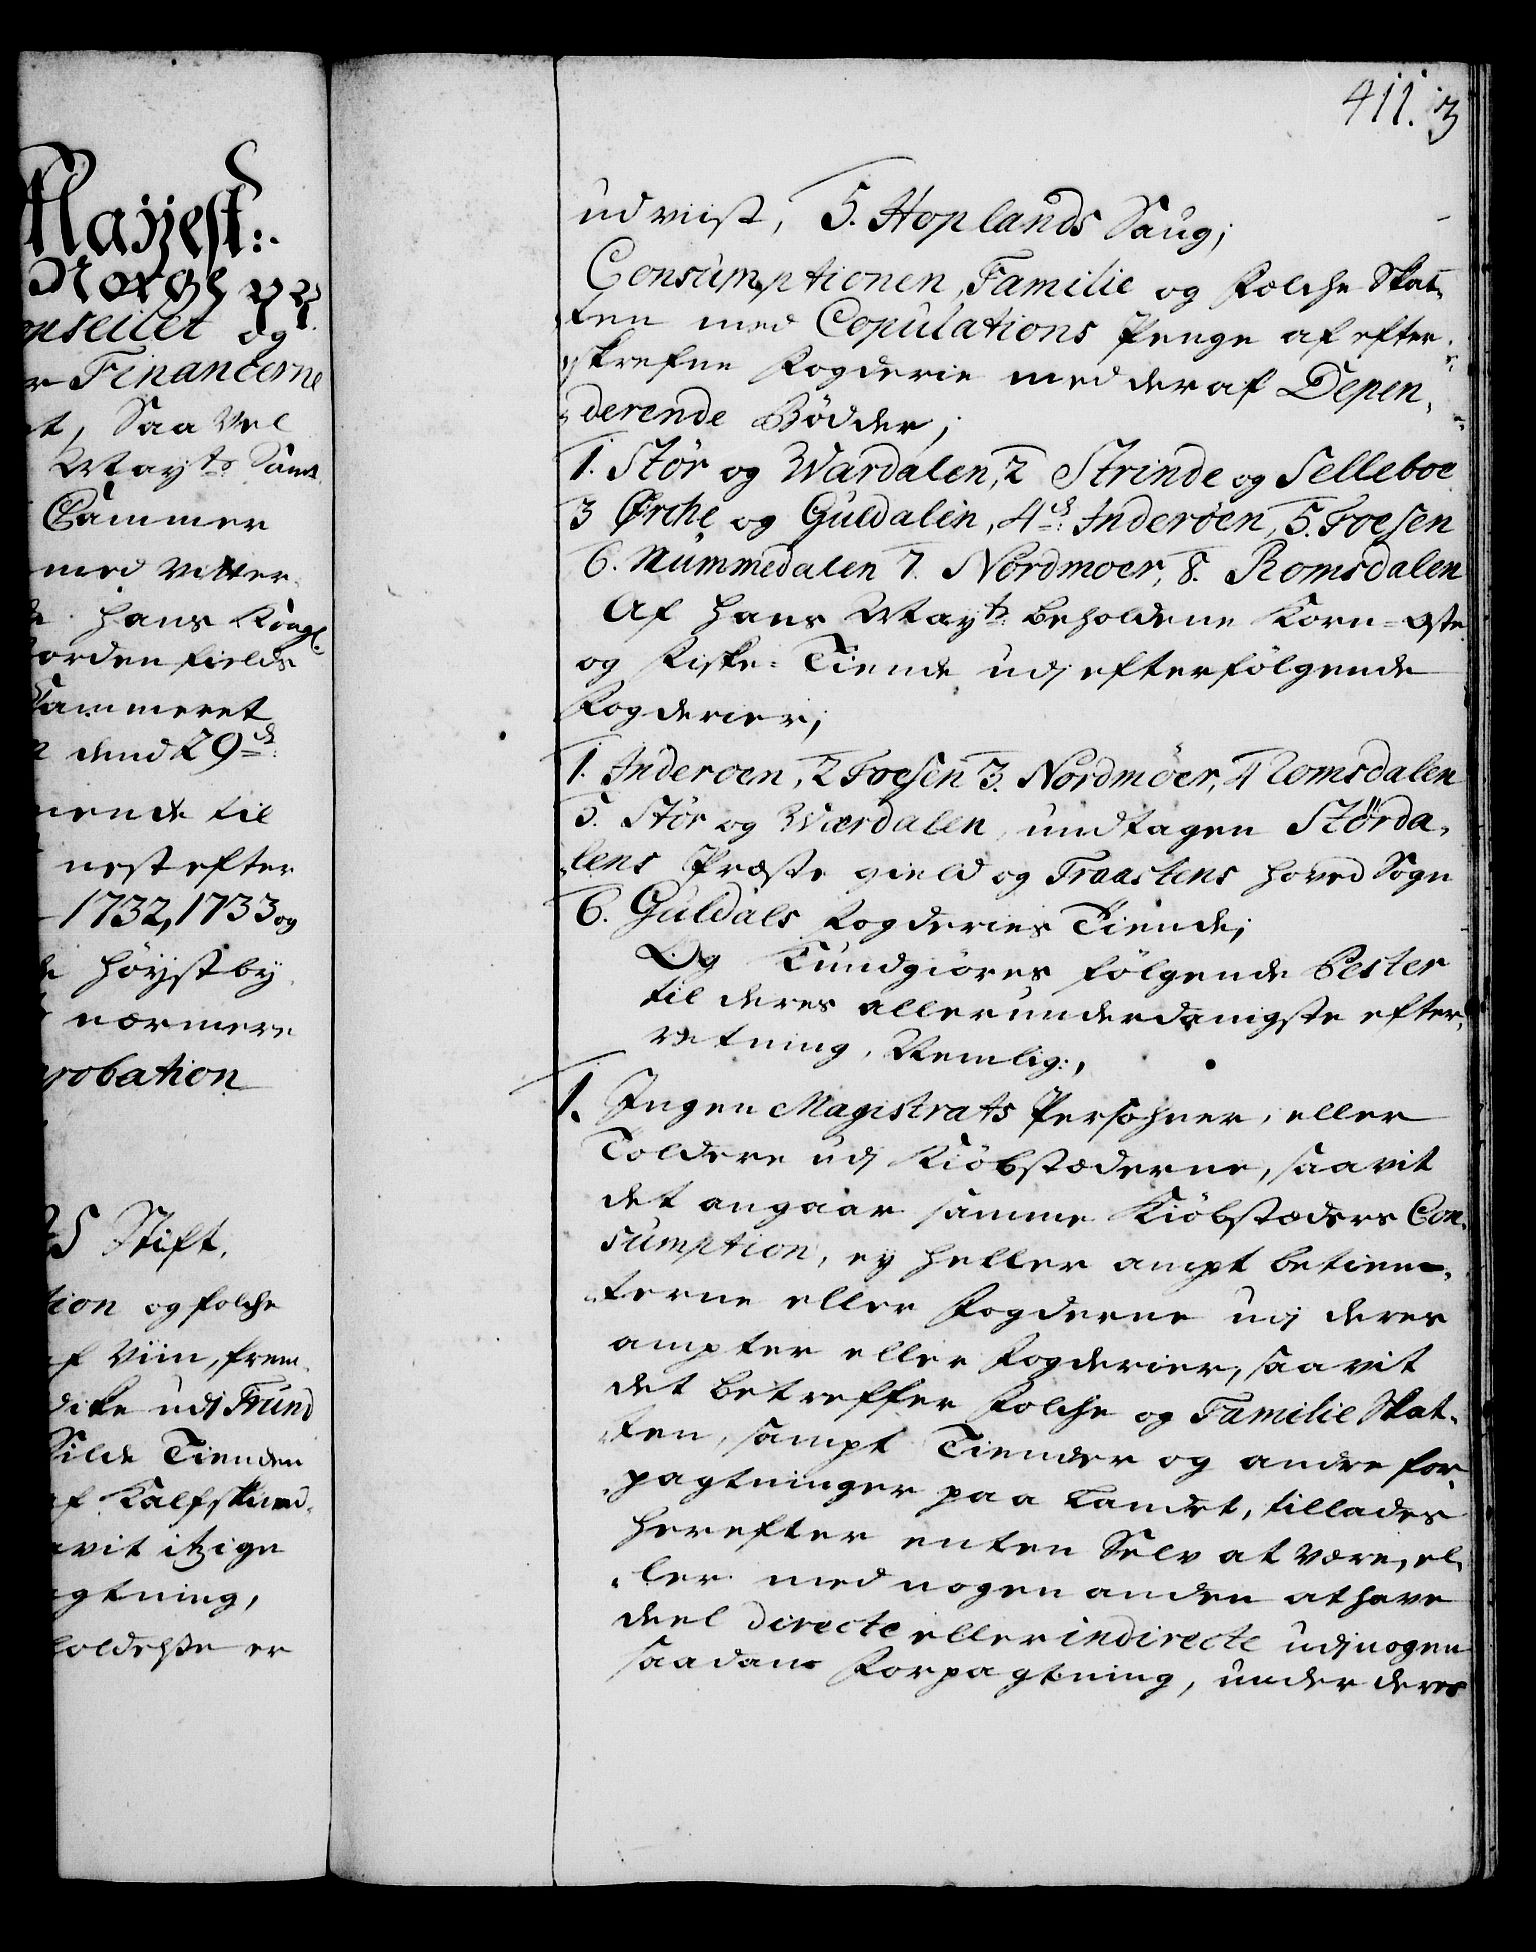 411. 3
Mayest:
Norge pp
og
Financerne
t, Saa Vel
Mayts Sam
Cammer
med vitter
hans Kongl
orden fields
ammeret
dend 29de
ende til
nest efter
1732, 1733 og
höyst by
nærmere
robation
S Stift.
tion og folche
af Viin, frem
dike udj Trund
Silde Tienden
af Kalfskind
avit itzige
gtning,
holdeste er
udviist, 5. Hoplands Saug;
Consumptionen, Familie og Folche Skat-
ten med Copulations Penge af efter-
skrefne Fogderie med deraf Depen-
derende Bödder;
1. Stör og Wardalen, 2 Strinde og Selleboe
3 Örche og Guldalen, 4de Inderöen, 5. Foesen
6. Nummedalen 7. Nordmoer, 8. Romsdalen
Af Hans Mayts beholdene Korn- Oste
og Fiske- Tiende udj efterfölgende
Fogderier;
1. Inderoen, 2 Foesen 3. Nordmöer, 4 Romsdalen
5. Stör og Wærdalen, undtagen Störda-
lens Præste gield og Fraastens hoved Sogn
6. Guldals Fogderies Tiende;
Og Kundgiöres fölgende Poster
til deres allerunderdanigste efter-
retning, Nemlig:,
1. Ingen Magistrats Persohner, eller
Toldere udj Kiöbstæderne, saavit
det angaar samme Kiöbstæders Con-
sumption, ey heller ampt betien-
terne eller Fogderne udj deres
ampter eller Fogderier, saavit
det betreffer Folche og Familie Skat-
ten, sampt Tiender og andre for
pagtninger paa Landet, tillades
herefter enten Selv at være, el-
ler med nogen anden at have
deel directe eller indirecte udj nogen
saadan Forpagtning, under deres